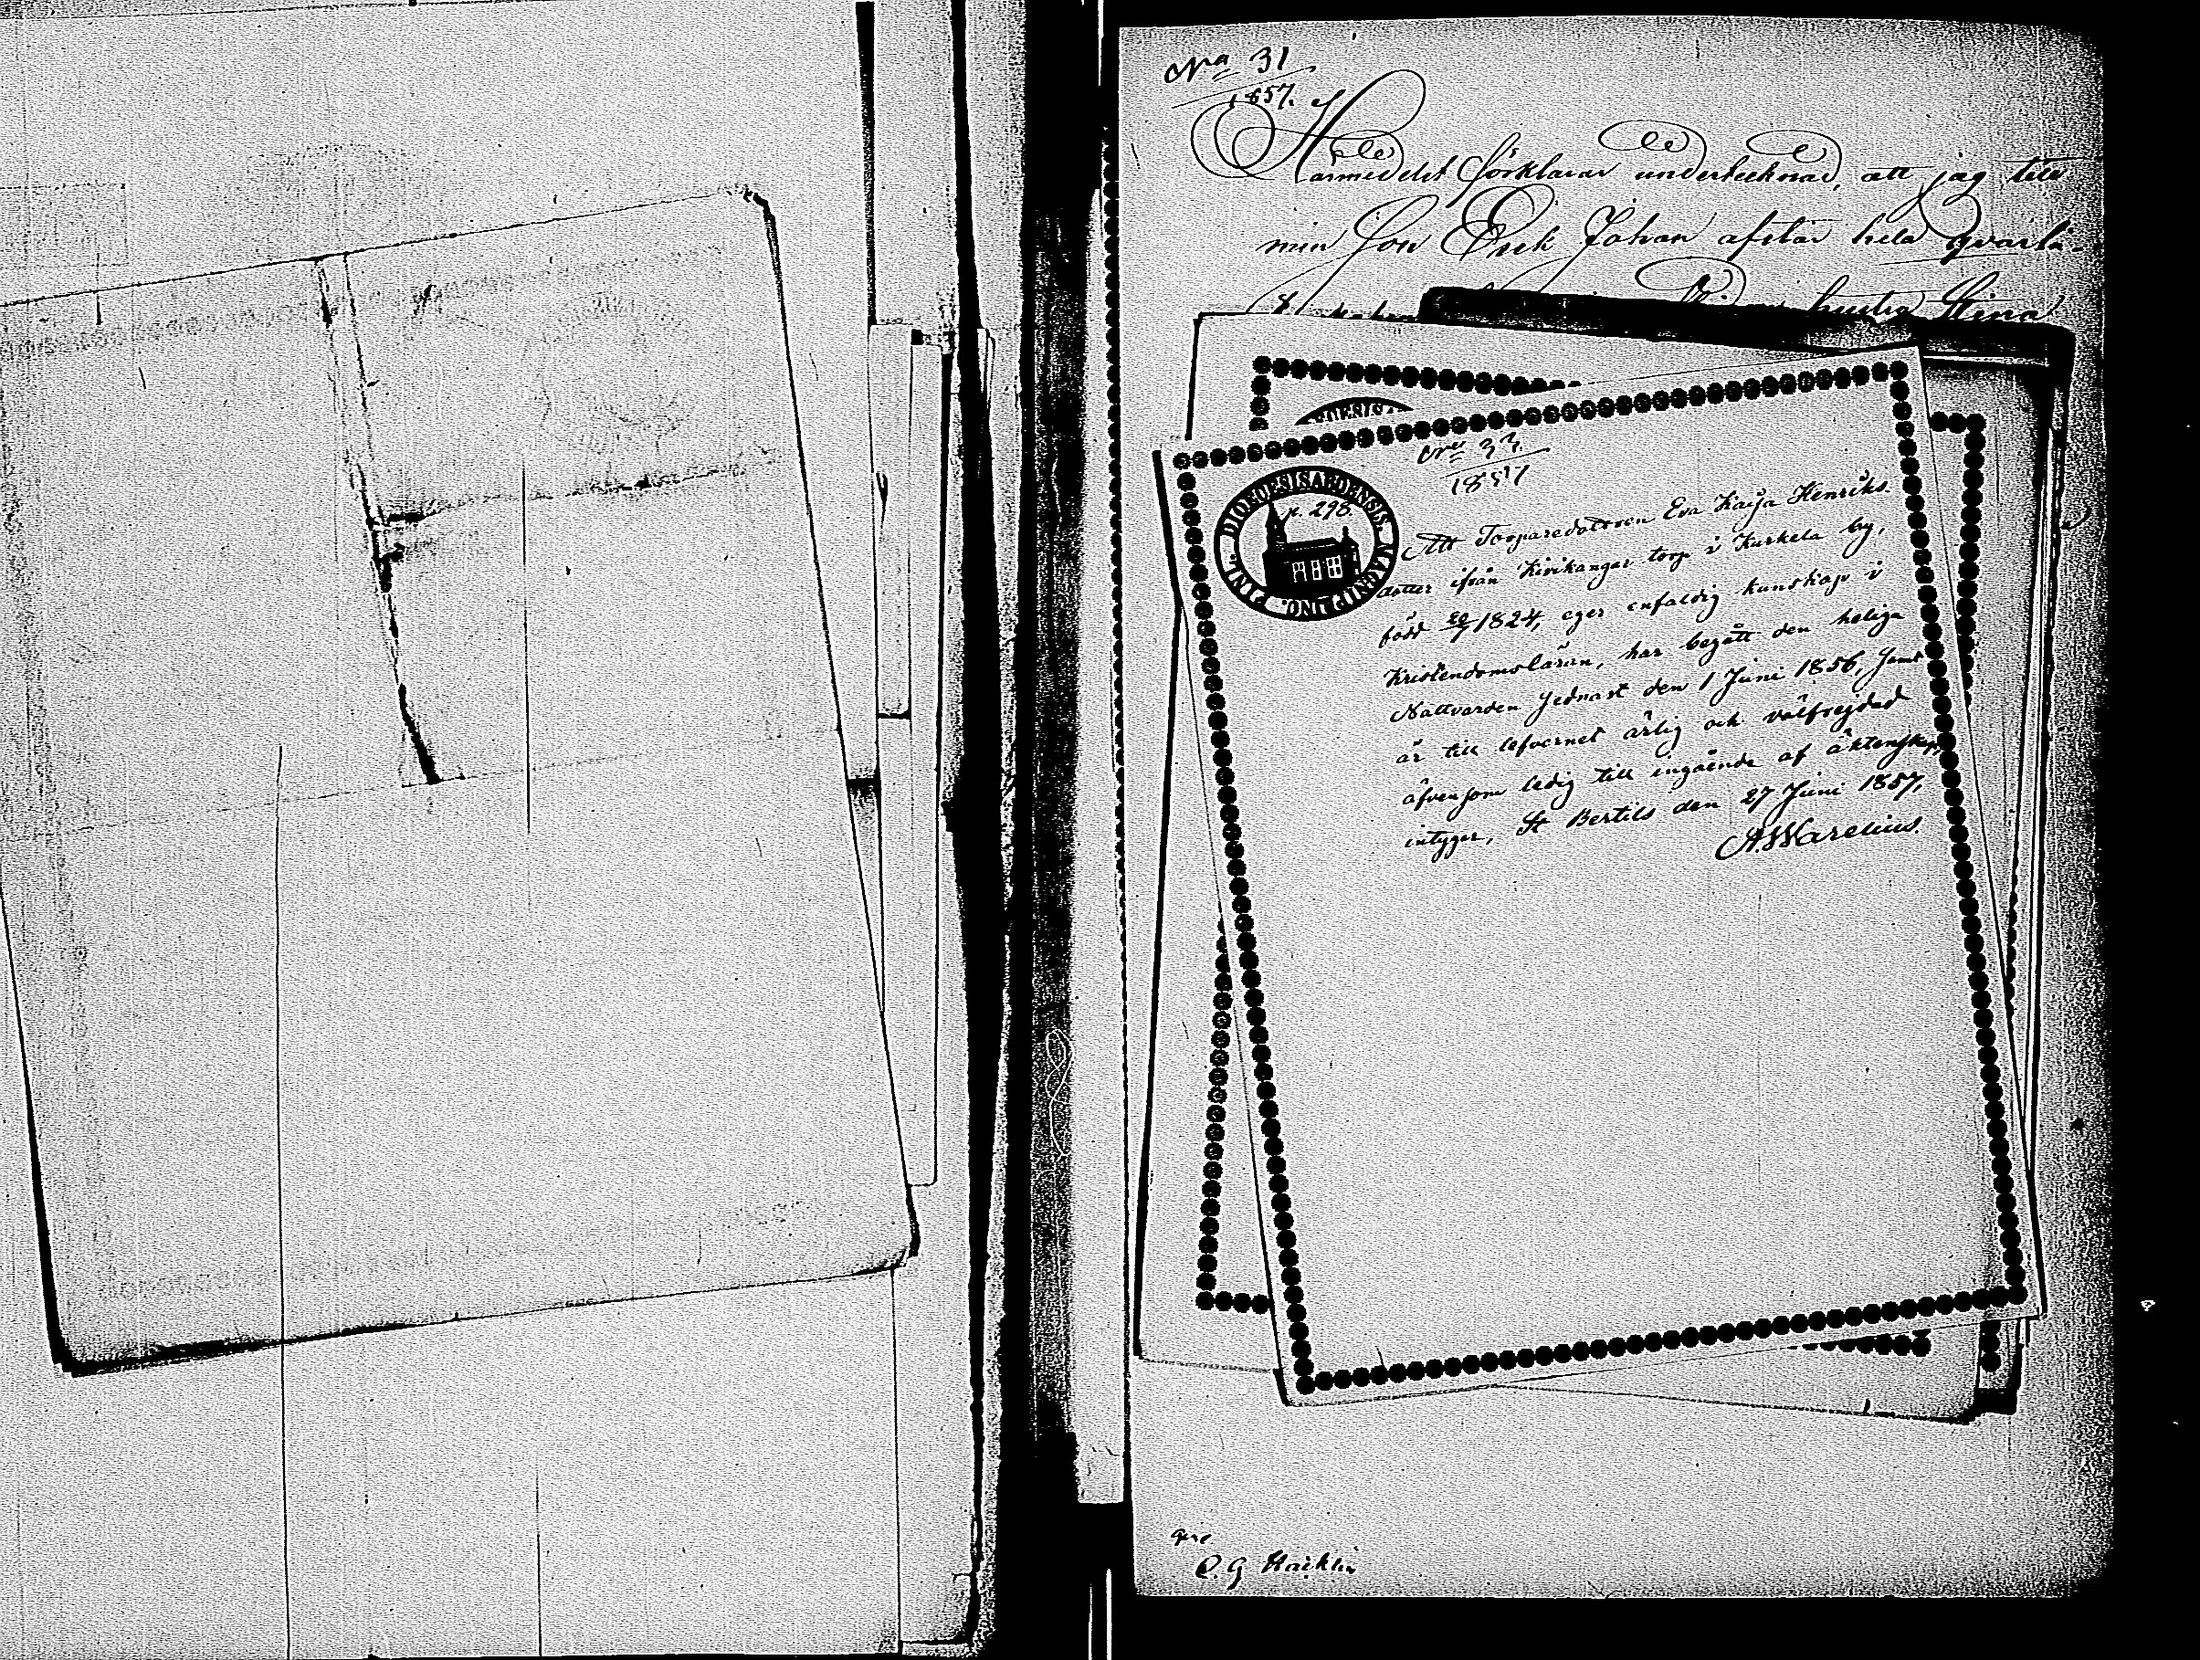 No 31
1857.
Härmedelst förklarar undertecknad, att jag till
min Son Erik Johan afstår hela qvarlå-
hustru Stina
DIOECESIS
No 33
1857
DIOECESIS ABOENSIS. MAGNI PRINC. FINL.
p. 298.
Att Torparedottren Eva Kaisa Henriks-
dotter ifrån Kivikangar torp i Kurkela by,
född 20/7 1824, eger enfaldig kunskap i
Kristendomsläran, har begått den heliga
Nattvarden sednast den 1 Juni 1856, samt
är till lefvernet ärlig och välfrejdad
äfvensom ledig till ingående af äktenskap,
intygar, St Bertils den 27 Juni 1857,
A. Warelius.